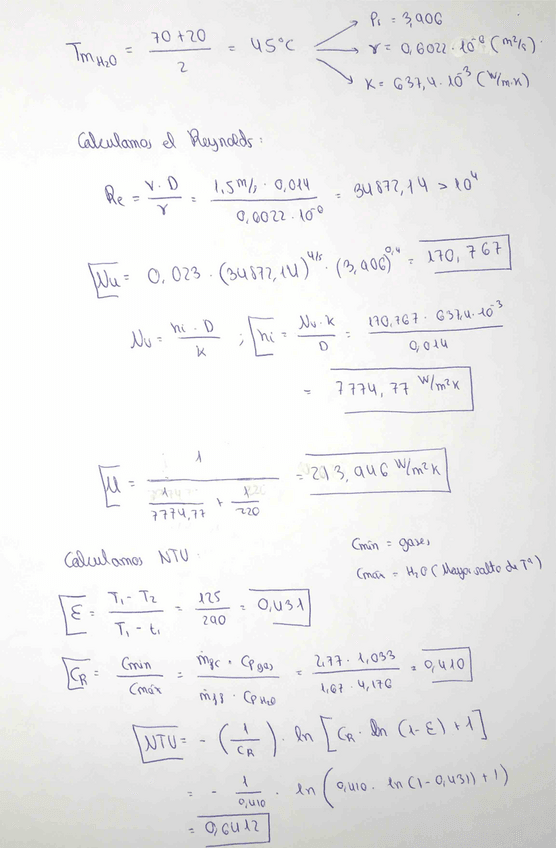 Pr = 3,906
Tm H2O = (70 + 20) / 2 = 45°C
r = 0,6022 · 10^-6 (m²/s)
K = 637,4 · 10^-3 (W/m·K)
Calculamos el Reynolds:
Re = (v · D) / r = (1,5 m/s · 0,014) / (0,6022 · 10^-6) = 34872,14 > 10^4
Nu = 0,023 · (34872,14)^4/5 · (3,906)^0,4 = 170,767
Nu = (hi · D) / K ; hi = (Nu · k) / D = (170,767 · 637,4 · 10^-3) / 0,014
= 7774,77 W/m²K
U = 1 / (1/7774,77 + 1/220) = 213,946 W/m²K
Cmin = gases
Calculamos NTU:
Cmáx = H2O (Mayor salto de Tª)
E = (T1 - T2) / (T1 - t1) = 125 / 290 = 0,431
CR = Cmin / Cmáx = (ṁgc · Cp gas) / (ṁ18 · Cp H2O) = (2,77 · 1,033) / (1,67 · 4,176) = 0,410
NTU = - (1 / CR) · ln [CR · ln (1-E) + 1]
= - 1 / 0,410 · ln (0,410 · ln (1 - 0,431) + 1)
= 0,6412